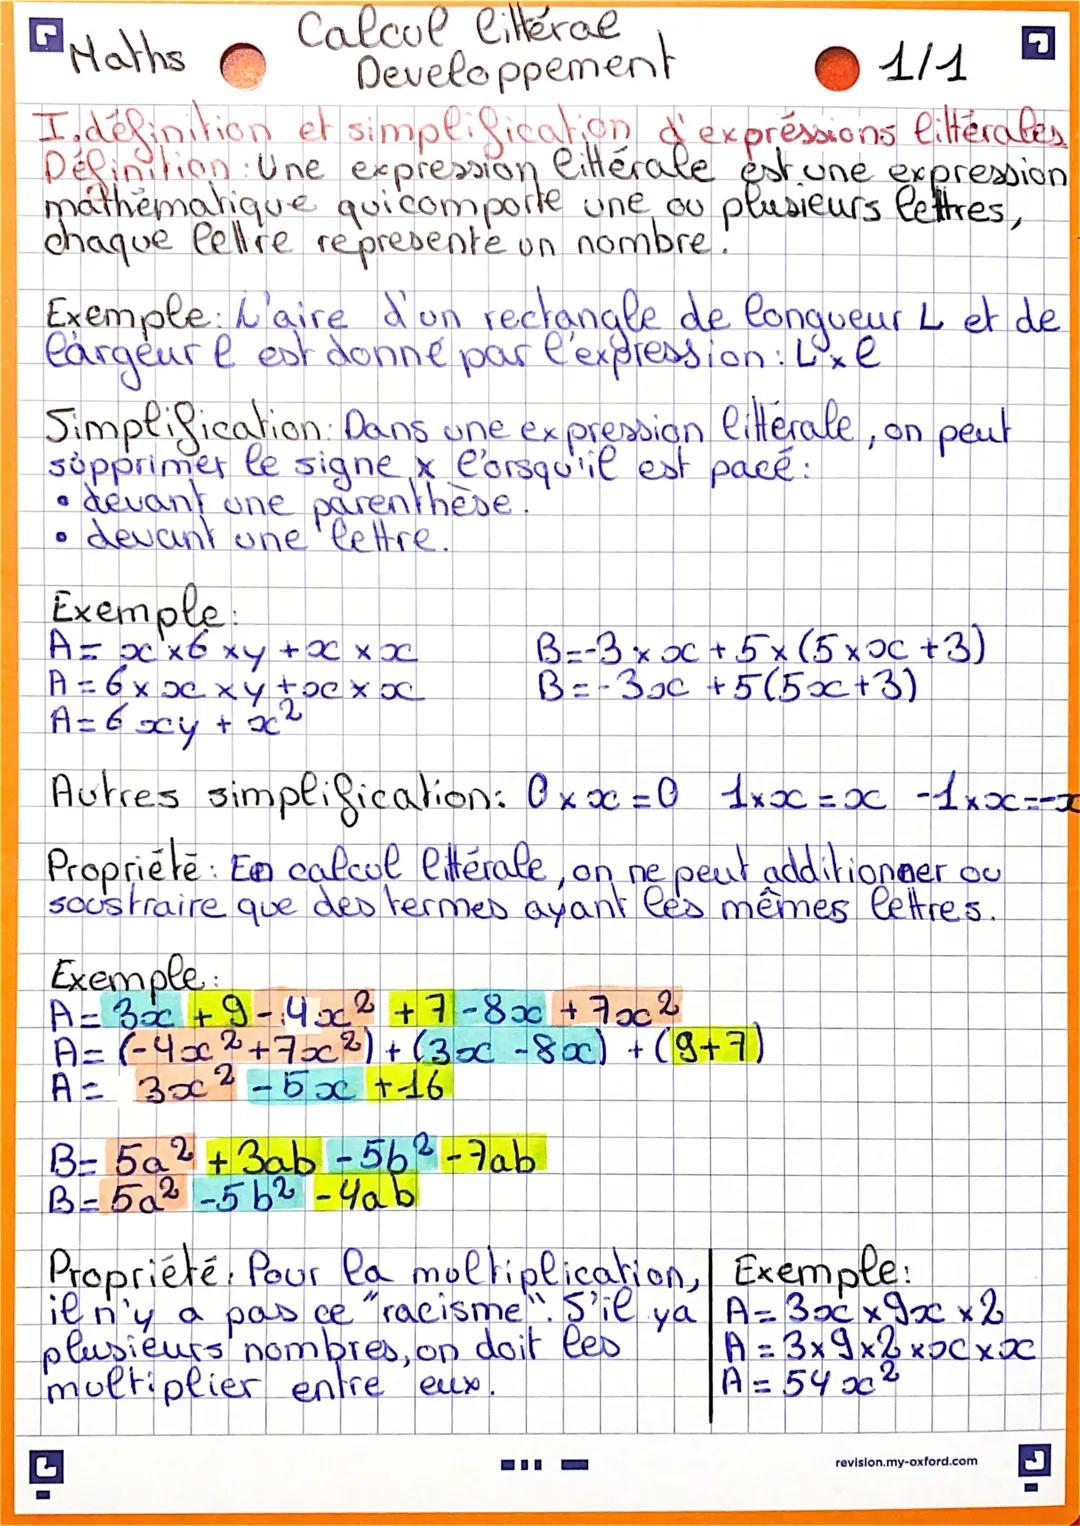 Maths
Calcul littéral
Developpement
1/1
I. définition et simplification d'expréssions littérales
Définition : Une expression littérale est une expression
mathématique qui comporte une ou plusieurs lettres,
chaque lettre représente un nombre.
Exemple : L'aire d'un rectangle de longueur L et de
largeur l est donné par l'expression : L x l
Simplification : Dans une expression littérale, on peut
supprimer le signe x l'orsqu'il est pacé :
• devant une parenthèse.
• devant une lettre.
Exemple :
A = x x 6 x y + x x x
A = 6 x x x y + x x x
A = 6xy + x²
B = -3 x x + 5 x (5 x x + 3)
B = -3x + 5(5x+3)
Autres simplification : 0 x x = 0 1 x x = x -1 x x = -x
Propriété : En calcul littérale, on ne peut additionner ou
soustraire que des termes ayant les mêmes lettres.
Exemple :
A = 3x + 9 - 4x² + 7 - 8x + 7x²
A = (-4x² + 7x²) + (3x - 8x) + (9+7)
A = 3x² - 5x + 16
B = 5a² + 3ab - 5b² - 7ab
B = 5a² - 5b² - 4ab
Propriété : Pour la multiplication,
il n'y a pas ce "racisme". S'il y a
plusieurs nombres, on doit les
multiplier entre eux.
Exemple :
A = 3x x 9x x 2
A = 3 x 9 x 2 x x x x
A = 54x²
revision.my-oxford.com